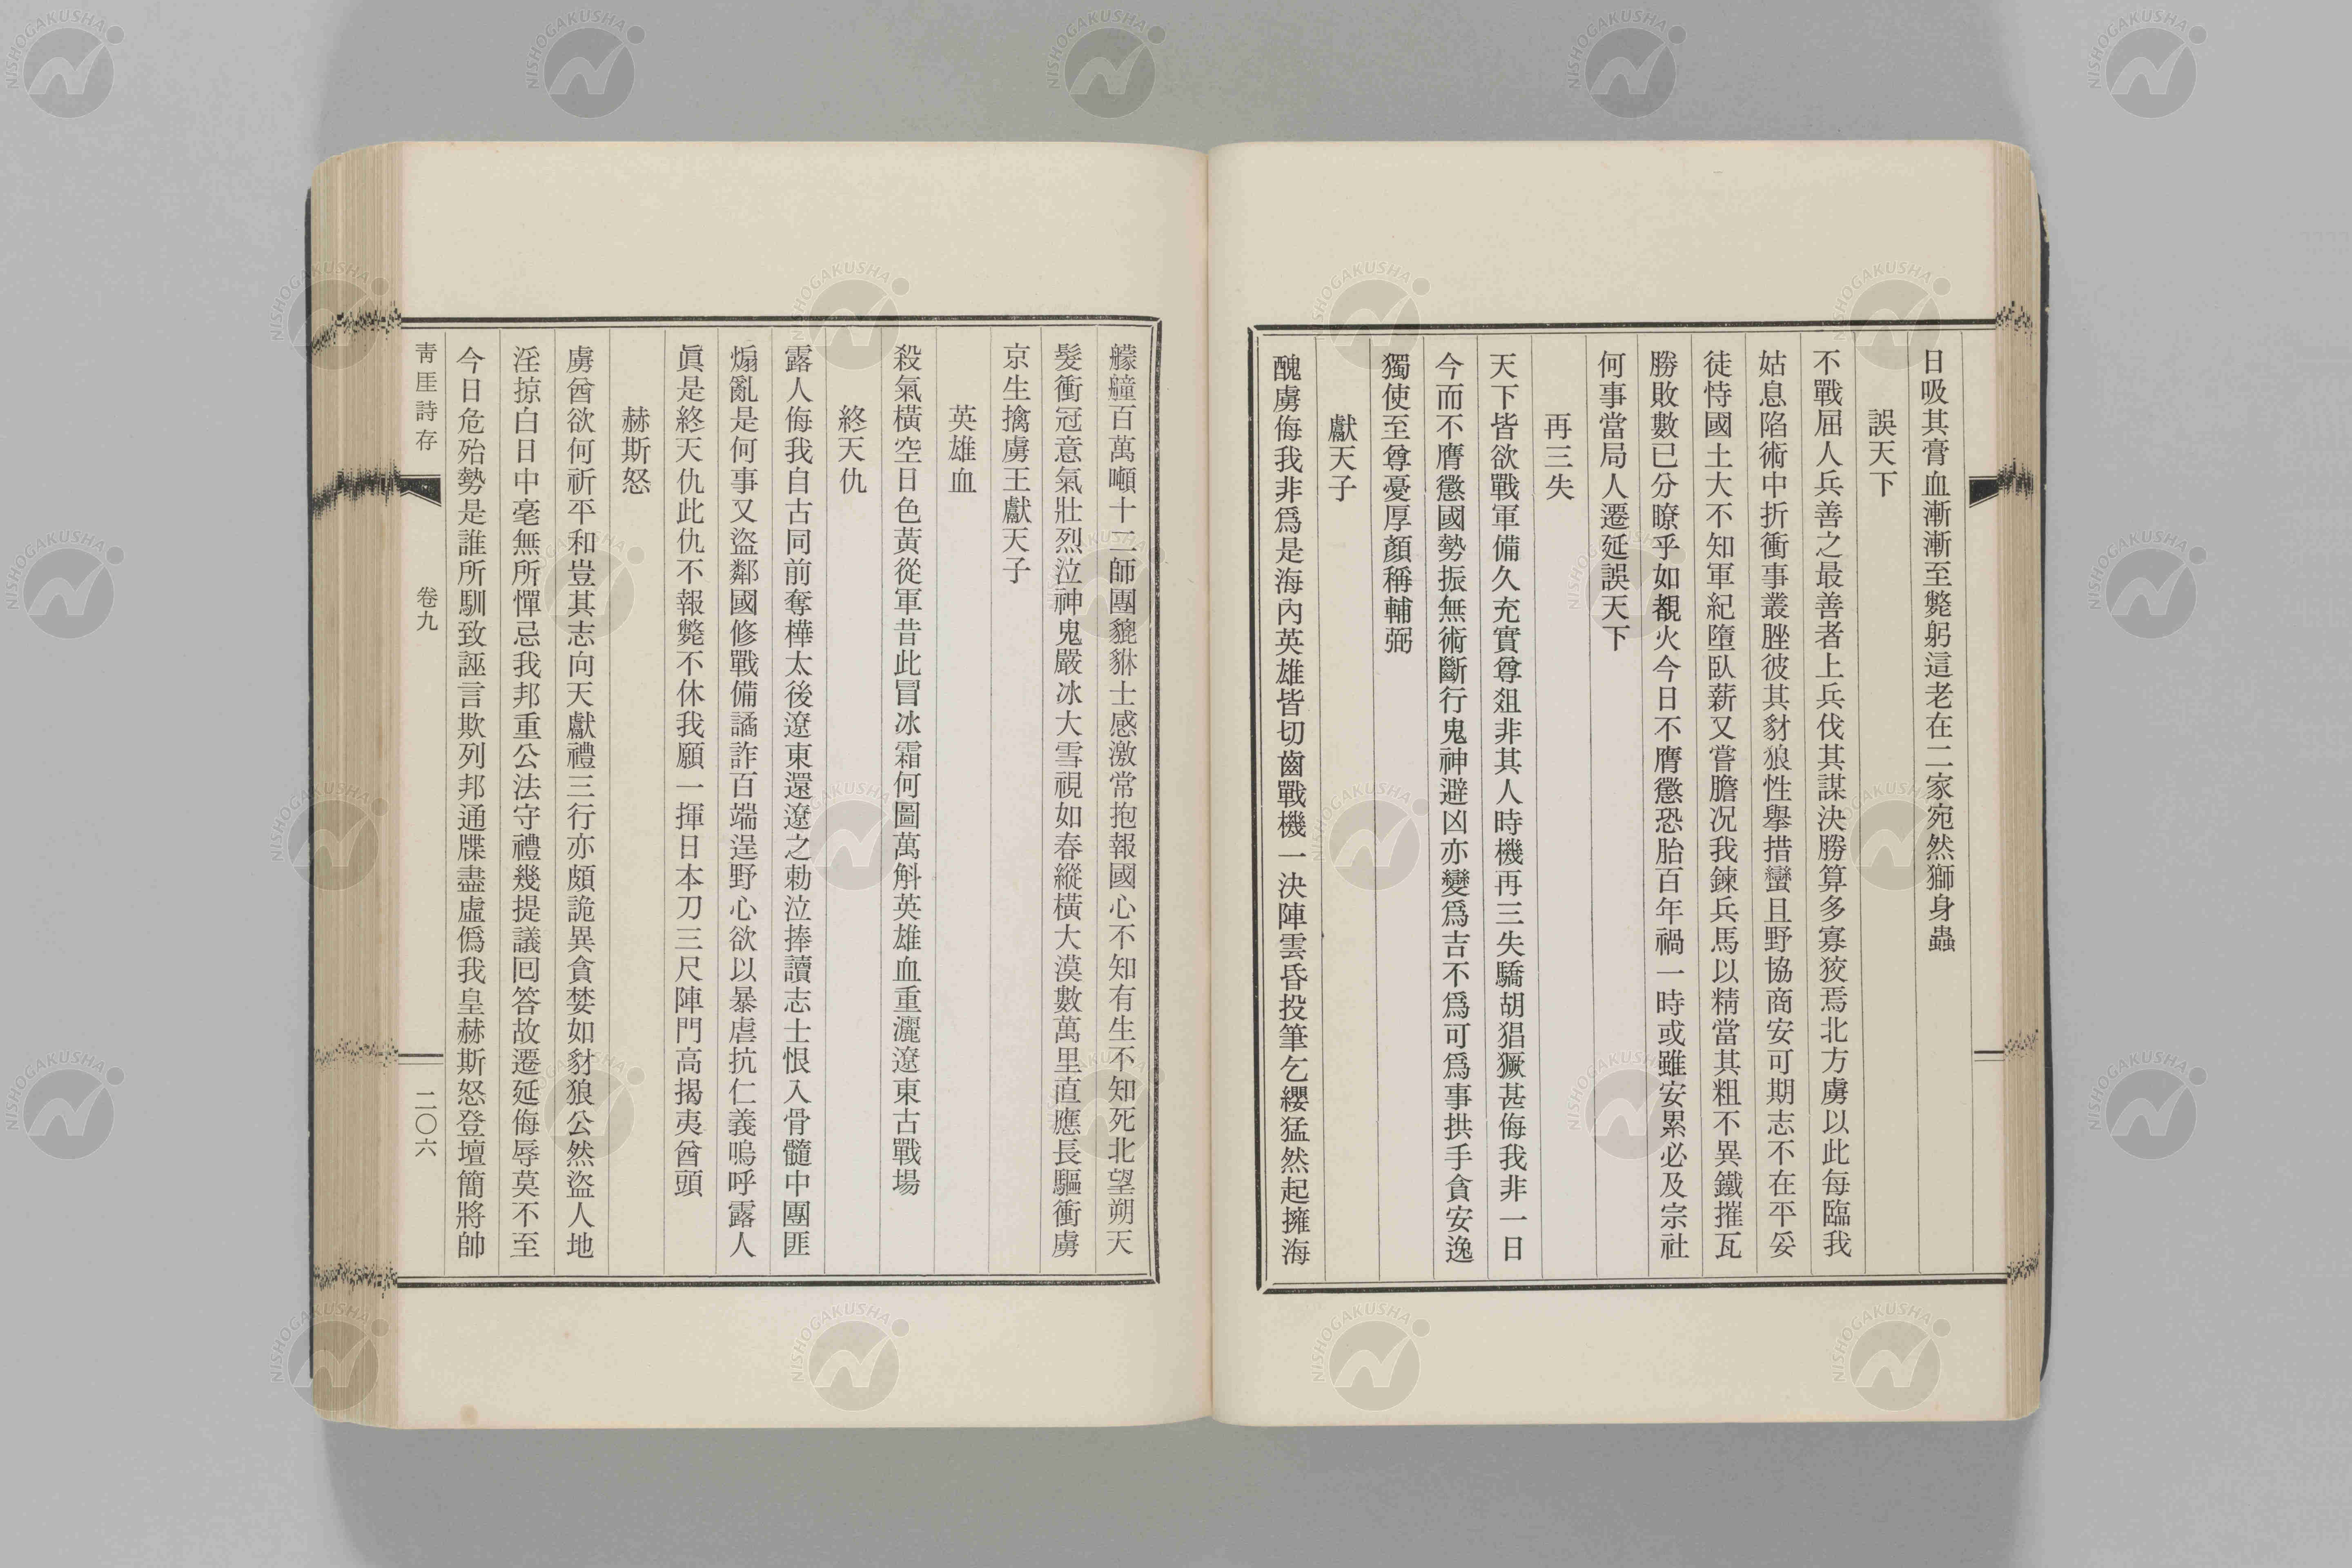 日吸其膏血漸漸至斃躬這老在二家宛然獅身蟲
誤天下
不戰屈人兵善之最善者上兵伐其謀決勝算多寡狡焉北方虜以此每臨我
姑息陷術中折衝事叢脞彼其豺狼性擧措蠻且野協商安可期志不在平妥
徒恃國土大不知軍紀墮臥薪又嘗膽况我鍊兵馬以精當其粗不異鐵摧瓦
勝敗數已分瞭乎如覩火今日不膺懲恐胎百年禍一時或雖安累必及宗社
何事當局人遷延誤天下
再三失
天下皆欲戰軍備久充實尊爼非其人時機再三失驕胡猖獗甚侮我非一日
今而不膺懲國勢振無術斷行鬼神避凶亦變爲吉不爲可爲事拱手貪安逸
獨使至尊憂厚顏稱輔弼
獻天子
醜虜侮我非爲是海內英雄皆切齒戰機一決陣雲昏投筆乞纓猛然起擁海
艨艟百萬噸十二師團貔貅士感激常抱報國心不知有生不知死北望朔天
髮衝冠意氣壯烈泣神鬼嚴冰大雪視如春縱橫大漠數萬里直應長驅衝虜
京生擒虜王獻天子
英雄血
殺氣橫空日色黃從軍昔此冒冰霜何圖萬斛英雄血重灑遼東古戰場
終天仇
露人侮我自古同前奪樺太後遼東還遼之勅泣捧讀志士恨入骨髓中團匪
煽亂是何事又盜鄰國修戰備譎詐百端逞野心欲以暴虐抗仁義嗚呼露人
眞是終天仇此仇不報斃不休我願一揮日本刀三尺陣門高揭夷酋頭
赫斯怒
虜酋欲何祈平和豈其志向天獻禮三行亦頗詭異貪婪如豺狼公然盜人地
淫掠白日中毫無所憚忌我邦重公法守禮幾提議囘答故遷延侮辱莫不至
今日危殆勢是誰所馴致誣言欺列邦通牒盡虛僞我皇赫斯怒登壇簡將帥
靑厓詩存
卷九
二〇六
NISHOGAKUSHA